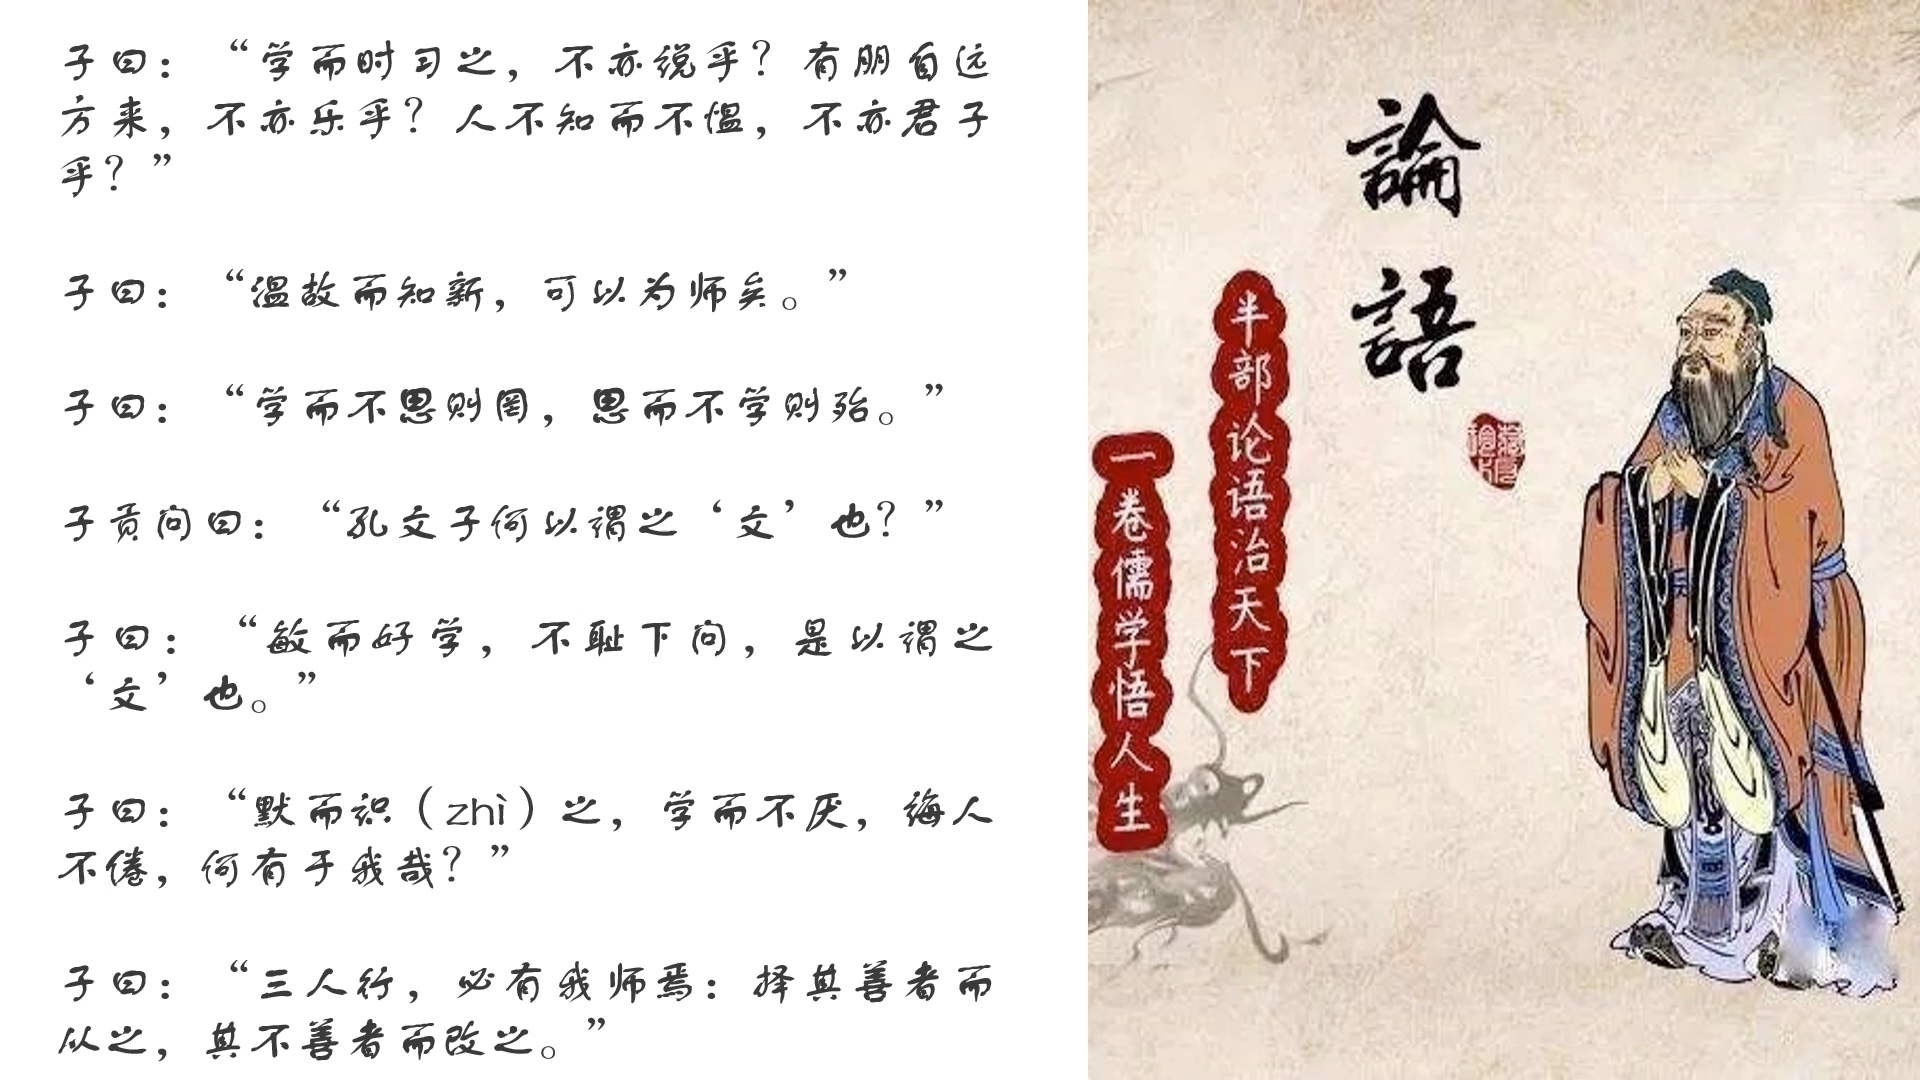 子曰：“学而时习之，不亦说乎？有朋自远
方来，不亦乐乎？人不知而不愠，不亦君子
乎？”
子曰：“温故而知新，可以为师矣。”
子曰：“学而不思则罔，思而不学则殆。”
子贡问曰：“孔文子何以谓之‘文’也？”
子曰：“敏而好学，不耻下问，是以谓之
‘文’也。”
子曰：“默而识（zhì）之，学而不厌，诲人
不倦，何有于我哉？”
子曰：“三人行，必有我师焉：择其善者而
从之，其不善者而改之。”
論語
半部论语治天下
一卷儒学悟人生